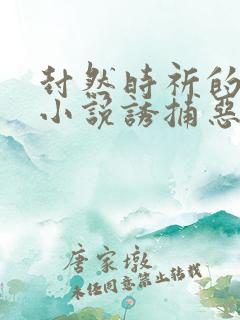 封然时祈的
小说诱捕恶
唐家墩
未经同意禁止转载